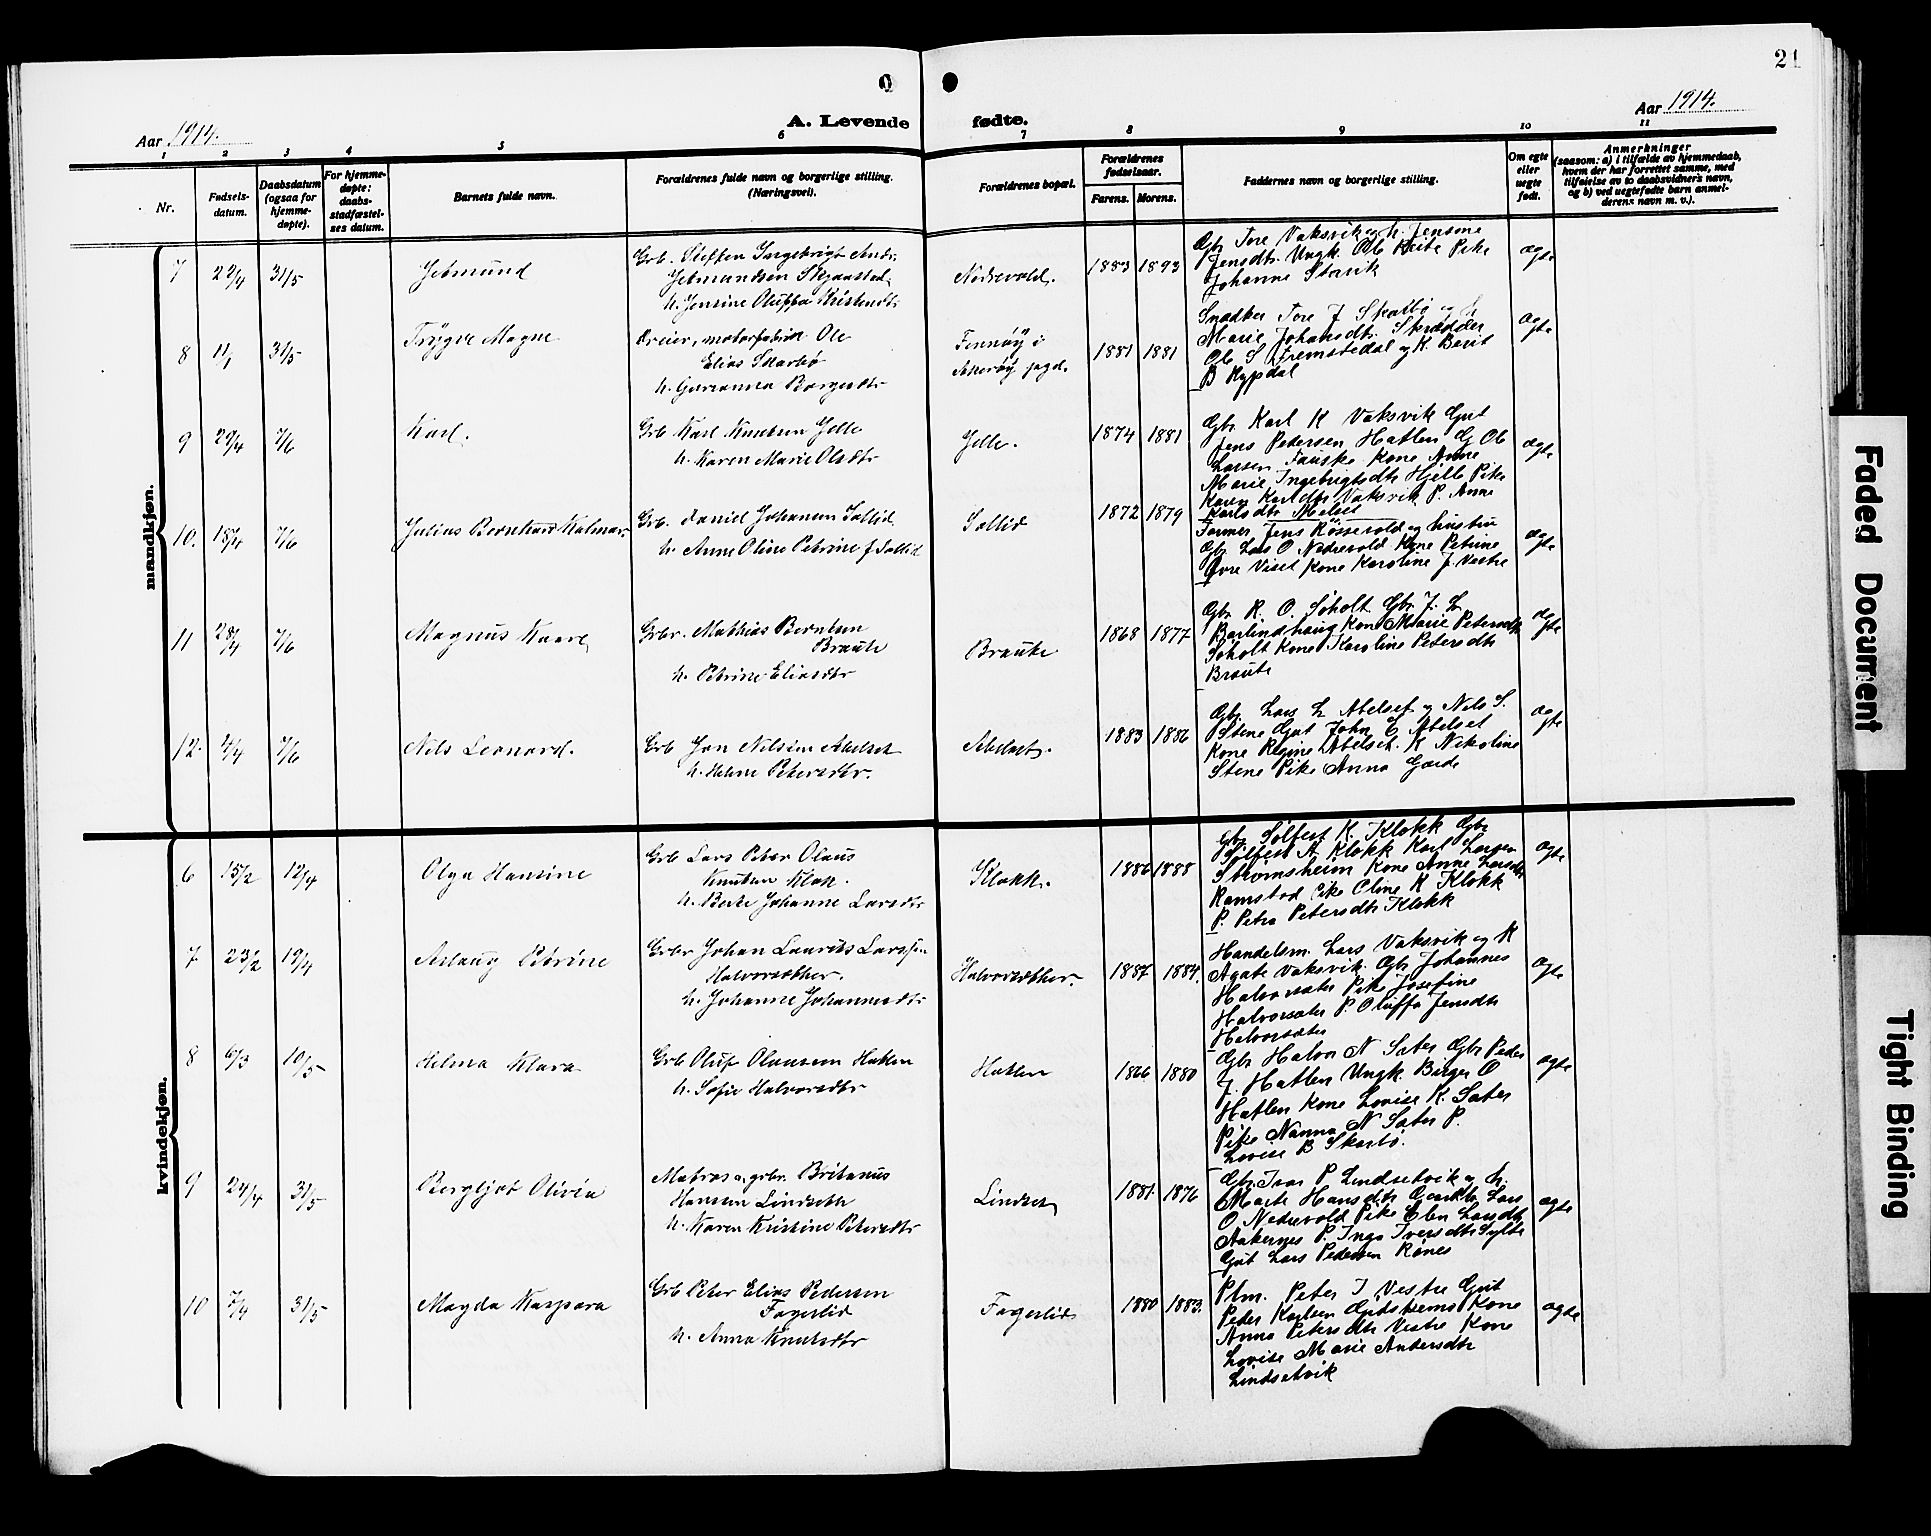 21
Aar 1914.
Aar 1914.
A. Levende fødte.
1 2 3 4 5 6 7 8 9 10 11
Nr.
Fødsels-
datum.
Daabsdatum
(ogsaa for
hjemme-
døpte).
For hjemme-
døpte:
daabs-
stadfæstel-
ses datum.
Barnets fulde navn.
Forældrenes fulde navn og borgerlige stilling.
(Næringsvei).
Forældrenes bopæl.
Forældrenes
fødselsaar.
Farens. Morens.
Faddernes navn og borgerlige stilling.
Om egte
eller
uegte
født.
Anmerkninger
(saasom: a) i tilfælde av hjemmedaab,
hvem der har forrettet samme, med
tilføielse av to daabsvidners navn,
og b) ved uegtefødte barn anmel-
derens navn m. v.).
mandkjøn.
7 22/4 31/5 Jetmund
Grb. Steffen Ingebrigt Andr.
Jetmundsen Skjaastad
h. Jensine Oluffa Kristendtr
Nedrevold. 1883 1893
Gbr Tore Vaksvik og h. Jensine
Jensdtr. Ungk. Ole Pike
Johanne Starvik
ægte
8 31/5 Trygve Magne
Dreier, motorfabrik Ole
Elias Skarbø
h. Gurianna Borgesdtr
Finnøy i
Akerøy pgd. 1881 1881
Snedker Tore J Skarbø og h
Marie Johansdtr. Skrædder
Ole S Fremstedal og K. Berit
B Rypdal
ægte
9 29/4 7/6 Karl.
Grb Karl Knutsen Jelle
h. Karen Marie Olsdtr
Jelle. 1874 1881
Gbr Karl K Vaksvik Gut
Jens Petersen Hatlen G Ole
Larsen Fauske Kone Anne
Marie Ingebrigtsdtr Hjelle Pike
Karen Karlsdtr Vaksvik P. Anne
Karlsdtr Melset
ægte
10. 18/4 7/6 Julius Bernhard Kalmar.
Grb. Daniel Johansen Sollid
h. Anne Oline Petrine J Sollid
Sollid 1872 1879
Former Jens Rösservold og hustru
Gbr Lars O Nedrevold Kone Petrine
Øvre Viset Kone Karoline J. Vestre
ægte
11 28/4 7/6 Magnus Kaare
Grbr. Mathias Berntsen
Braute
h. Petrine Eliasdtr
Braute 1868 1877
Gbr R. O. Søholt Gbr J. L
Barlindhaug Kone Marie Petersdtr
Søholt Kone Karoline Petersdtr
Braute
ægte
12. 4/4 7/6 Nils Leonard.
Grb Jon Nilsen Abelset
h. Helene Petersdtr.
Abelset. 1883 1886
Gbr. Lars L Abelset og Nils S.
Stene Gut John E Abelset
Kone Regine Abelset. K Nikoline
Stene Pike Anna Gaede
ægte
kvindekjøn.
6 15/2 12/4 Olga Hansine
Grb Lars Peter Olaus
Knutsen Klok.
h. Berte Johanne Larsdtr
Klokk. 1886 1888
Gbr Sølfest K. Klokk Gbr
Sølfest A Klokk Karl Larsen
Strömsheim Kone Anne Larsdtr
Ramstad Pike Oline K Klokk
P. Petra Petersdtr Klokk
ægte
7 23/2 19/4 Aslaug Pörine
Grbr Johan Laurits Larssen
Halvorsether.
h. Johanne Johannesdtr
Halvorsether. 1887 1884.
Handelsm. Lars Vaksvik og K
Agate Vaksvik. Gbr Johannes
Halvorsæter Pike Josefine
Halvorsæter P. Oluffa Jensdtr
Halvorsæter
ægte
8 6/3 10/5 Helma Klara
Grb Oluf Olausen Hatlen
h. Sofie Halvorsdtr
Hatlen 1866 1880
Gbr Halvor N Sæter Gbr Peder
J. Hatlen Ungk. Birger O
Hatlen Kone Lovise K. Sæter
Pike Nanna N Sæter P.
Lovise B Skarbö.
ægte
9 24/4 31/5 Bergljot Olivia
Matros og grbr. Britanus
Hansen Lindseth
h. Karen Kristine Petersdtr
Lindset 1881. 1876
Gbr Ivar P Lindsetvik og h.
Marte Hansdtr Gaardbr. Lars
O Nedrevold Pike Elen Larsdtr
Aakernes P. Inga Iversdtr Sylte
Gut Lars Pedersen Rönes
ægte
10 7/4 31/5 Magda Kaspara
Grb Peter Elias Pedersen
Fagerlid
h. Anna Knutsdtr
Fagerlid 1880 1883.
Plm. Peter I Vestre Gut
Peder Karlsen Gjedskrems Kone
Anna Petersdtr Vestre Kone
Lovise Marie Andersdtr
Lindsetvik
ægte
Faded Document
Tight Binding